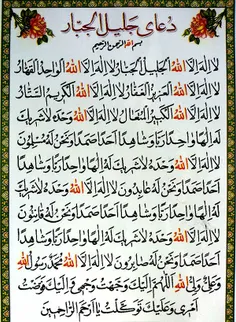 دعای جلیل الجبار
بسم الله الرحمن الرحیم
لا اله الا الله الجلیل الجبار لا اله الا الله الواحد القهار
لا اله الا الله العزیز الغفار لا اله الا الله الکریم الستار
لا اله الا الله الکبیر المتعال لا اله الا الله وحده لا شریک
له الها واحدا ربا و شاهدا احدا صمدا و نحن له مسلمون
لا اله الا الله وحده لا شریک له الها واحدا ربا و شاهدا
احدا صمدا و نحن له عابدون لا اله الا الله وحده لا شریک
له الها واحدا ربا و شاهدا احدا صمدا و نحن له قانتون
لا اله الا الله وحده لا شریک له الها واحدا ربا و شاهدا
احدا صمدا و نحن له صابرون لا اله الا الله محمد رسول الله
و علی ولی الله اللهم الیک وجهت وجهی و الیک فوضت
امری و علیک توکلت یا ارحم الراحمین